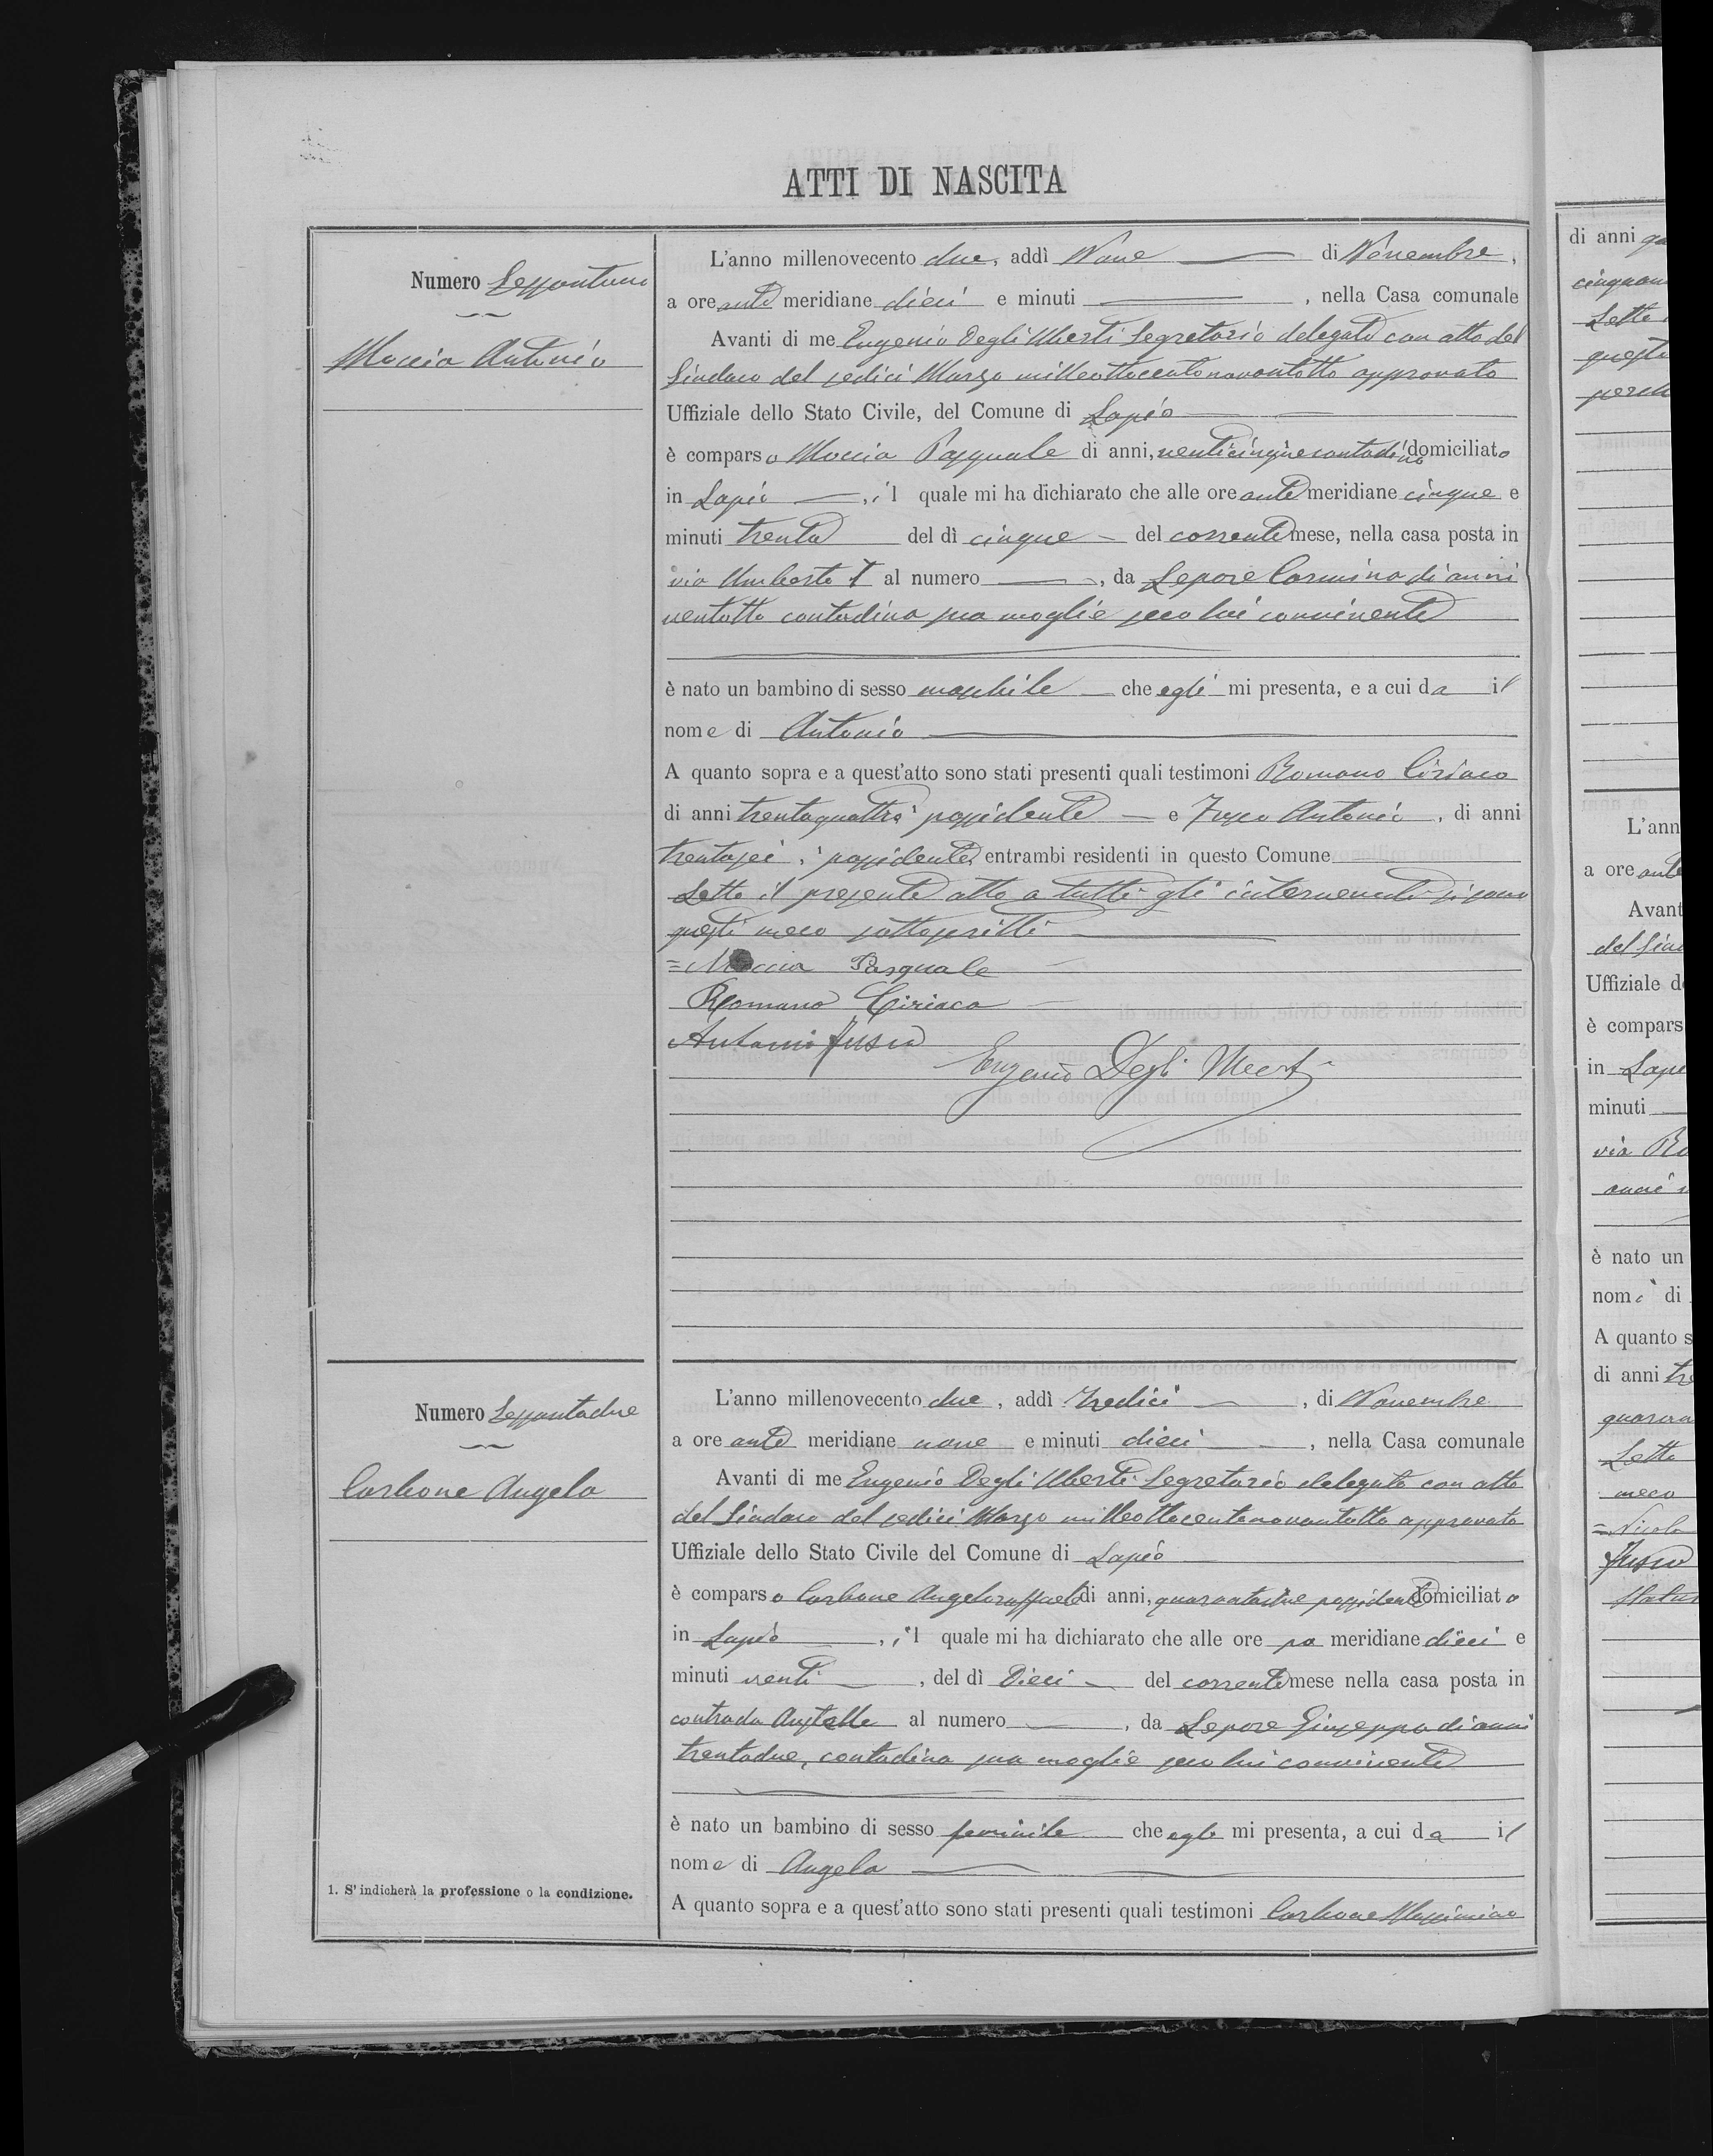 ATTI DI NASCITA
Numero Sessantuno
Moccia Antonio
L'anno millenovecento due, addì Nove di Novembre,
a ore ante meridiane dieci e minuti , nella Casa comunale
Avanti di me Eugenio Degli Uberti Segretario delegato con atto del
Sindaco del sedici Marzo milleottocentonovantotto approvato
Uffiziale dello Stato Civile, del Comune di Lapio
è comparso Moccia Pasquale di anni, venticinque contadino domiciliato
in Lapio , il quale mi ha dichiarato che alle ore ante meridiane cinque e
minuti trenta del dì cinque del corrente mese, nella casa posta in
via Umberto I al numero , da Lepore Carmina di anni
ventotto contadina sua moglie seco lui convivente
è nato un bambino di sesso maschile che egli mi presenta, e a cui da il
nome di Antonio
A quanto sopra e a quest'atto sono stati presenti quali testimoni Romano Ciriaco
di anni trentaquattro possidente e Fusco Antonio, di anni
trentasei, possidente, entrambi residenti in questo Comune
Letto il presente atto a tutti gli intervenuti si sono
questi meco sottoscritti
= Moccia Pasquale
Romano Ciriaco
Antonio Fusco
Eugenio Degli Uberti
Numero Sessantadue
Carbone Angela
L'anno millenovecento due, addì tredici , di Novembre
a ore ante meridiane nove e minuti dieci , nella Casa comunale
Avanti di me Eugenio Degli Uberti Segretario delegato con atto
del Sindaco del sedici Marzo milleottocentonovantotto approvato
Uffiziale dello Stato Civile del Comune di Lapio
è comparso Carbone Angeloraffaele di anni, quarantadue possidente domiciliato
in Lapio , il quale mi ha dichiarato che alle ore po meridiane dieci e
minuti venti , del dì Dieci del corrente mese nella casa posta in
contrada al numero , da Lepore Giuseppa di anni
trentadue, contadina sua moglie seco lui convivente
è nato un bambino di sesso feminile che egli mi presenta, a cui da il
nome di Angela
A quanto sopra e a quest'atto sono stati presenti quali testimoni Carbone Massimino
1. S'indicherà la professione o la condizione.
di anni
Letto
L'ann
a ore ante
Avant
del Sin
Uffiziale d
è compars
in Lapi
minuti
via
anni
è nato un
nome di
A quanto s
di anni tre
Letto
meco
= Nicola
Fusco